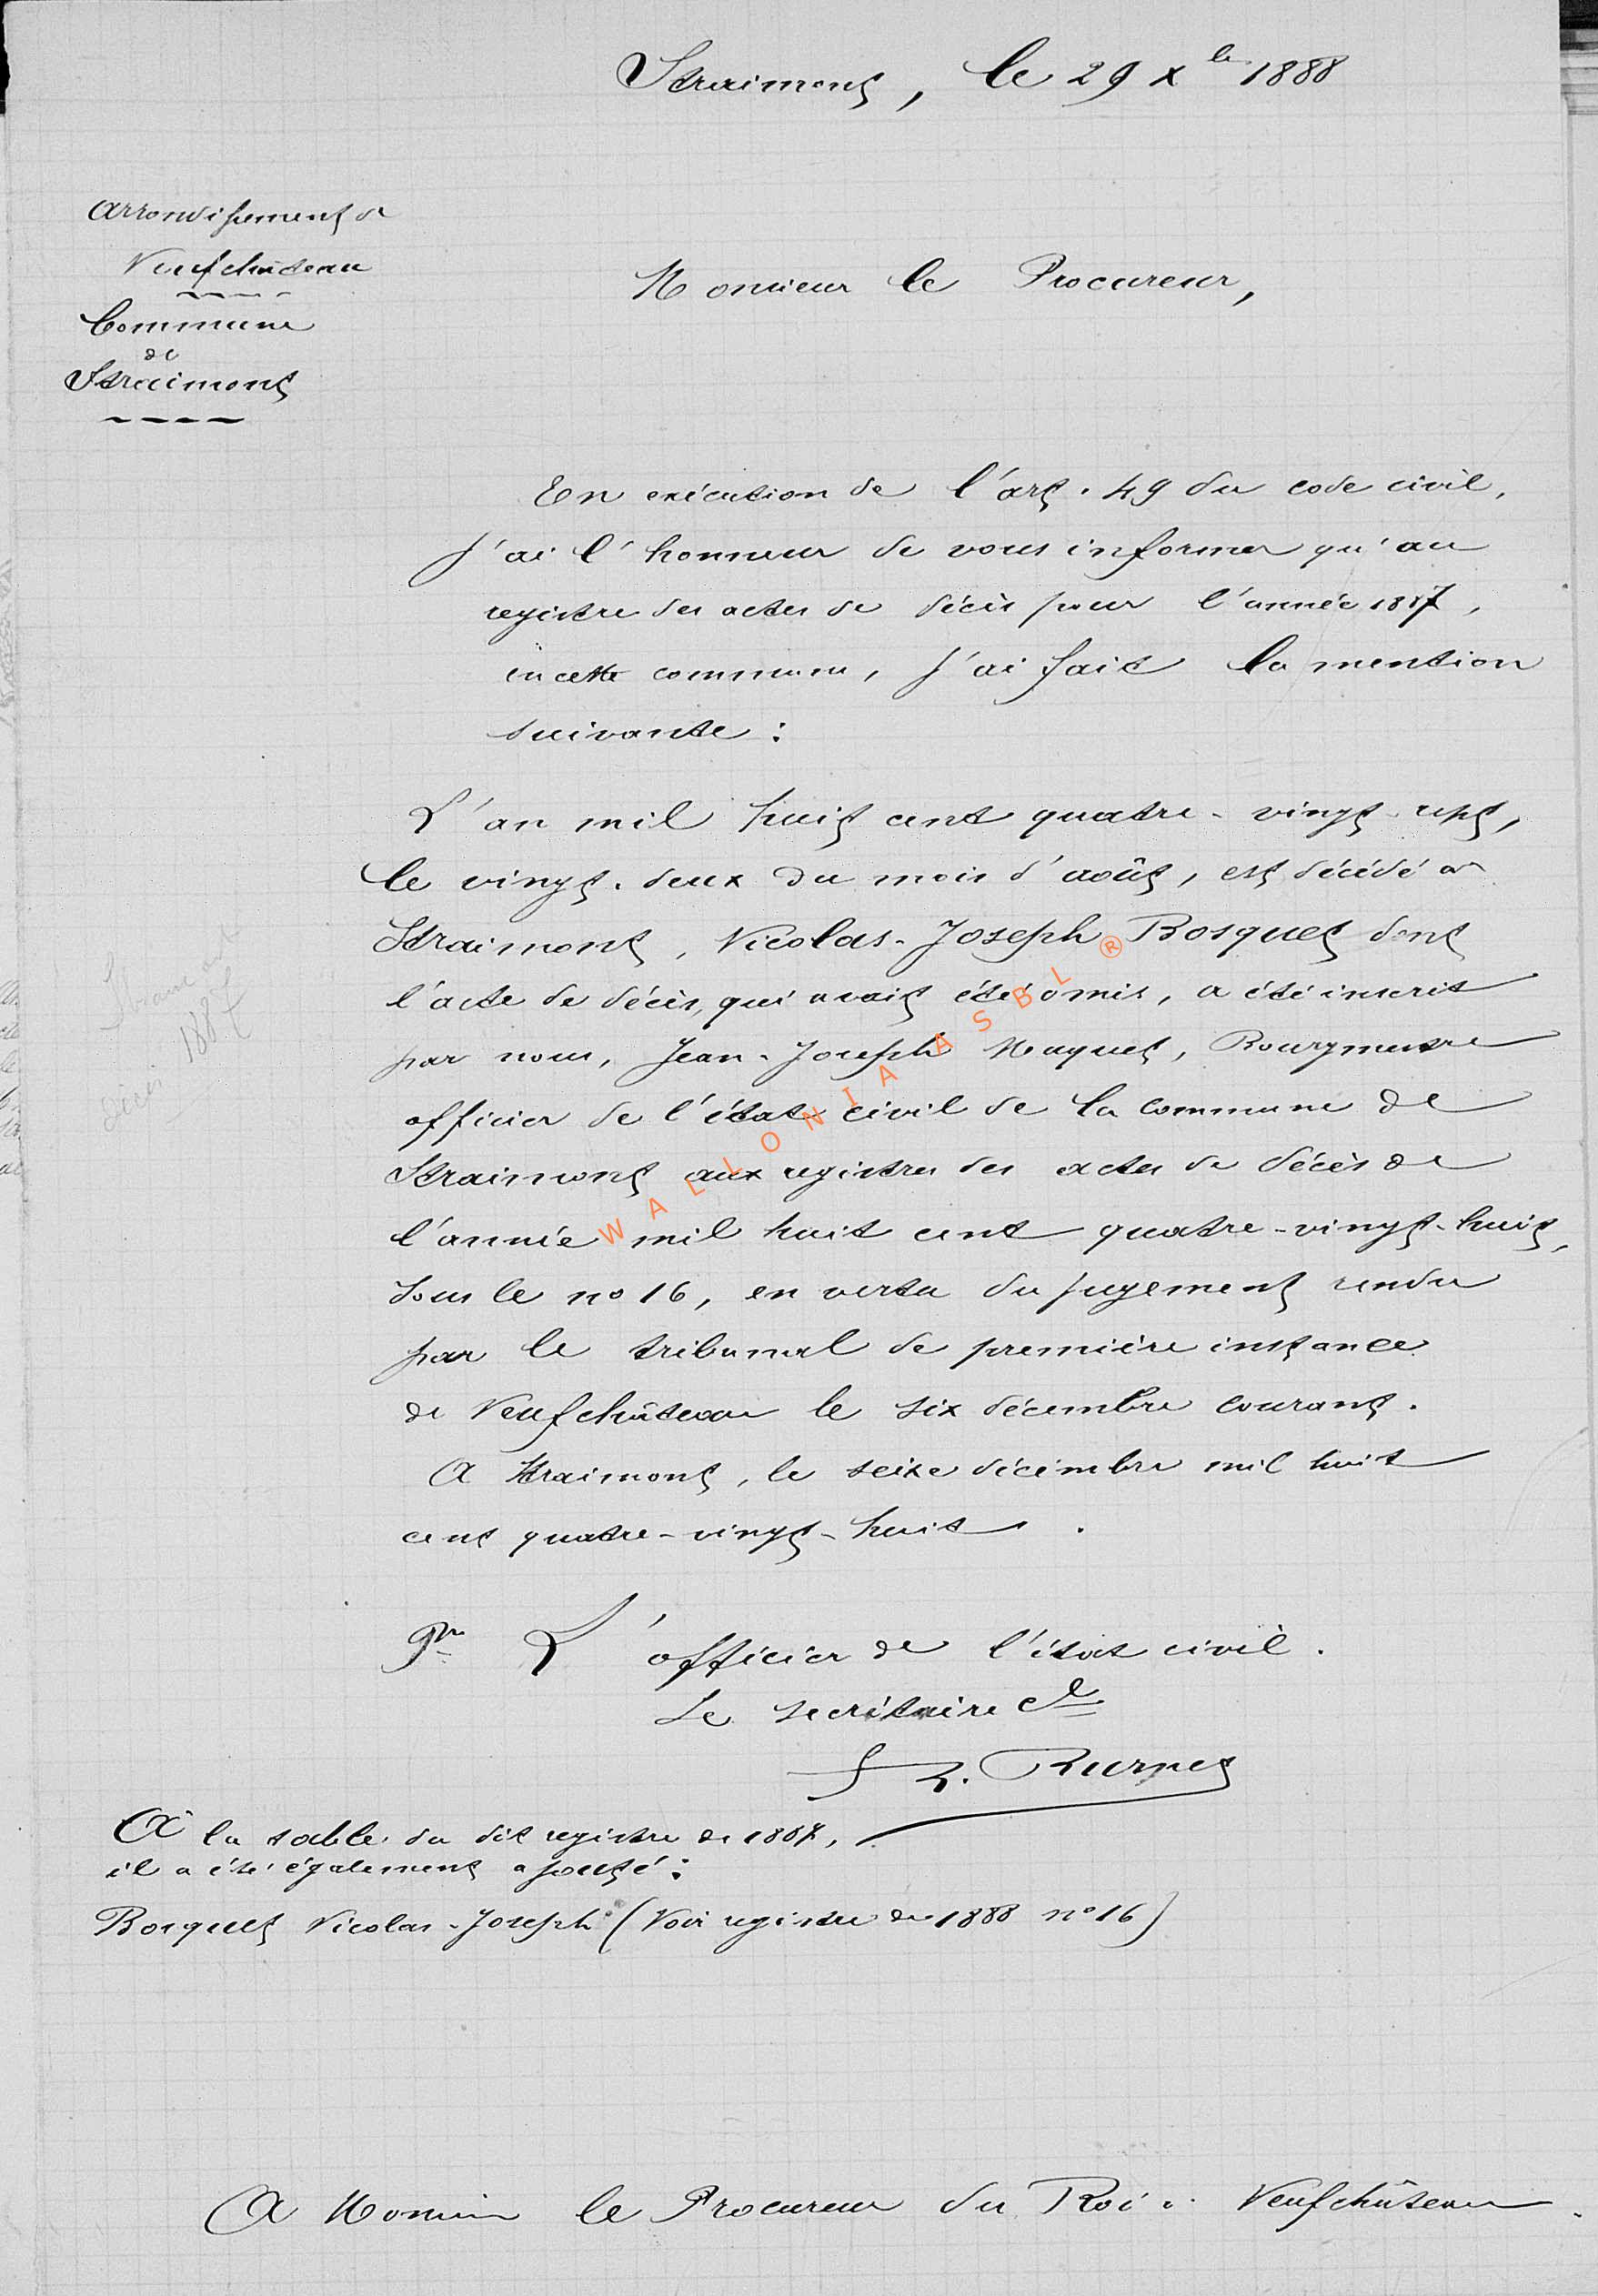 Straimont, le 29 Xbre 1888
Arrondissement de
Neufchâteau
Commune
de
Straimont
Monsieur le Procureur,
En exécution de l'art. 49 du code civil,
J'ai l'honneur de vous informer qu'au
registre des actes de décès pour l'année 1887,
en cette commune, J'ai fait la mention
suivante :
L'an mil huit cent quatre-vingt-sept,
le vingt-deux du mois d'août, est décédé à
Straimont, Nicolas-Joseph Bosquet dont
l'acte de décès, qui avait été omis, a été inscrit
par nous, Jean-Joseph Maquet, Bourgmestre
officier de l'état civil de la commune de
Straimont aux registres des actes de décès de
l'année mil huit cent quatre-vingt-huit,
sous le no 16, en vertu du jugement rendu
par le tribunal de première instance
de Neufchâteau le six décembre courant.
A Straimont, le seize décembre mil huit
cent quatre-vingt-huit.
Pr L'officier de l'état civil.
Le secrétaire cl
A la table du dit registre de 1887,
il a été également ajouté :
Bosquet Nicolas-Joseph (Voir registre de 1888 no 16)
A Monsieur le Procureur du Roi à Neufchâteau.
Straimont
1887
décès
WALLONIA ASBL ®